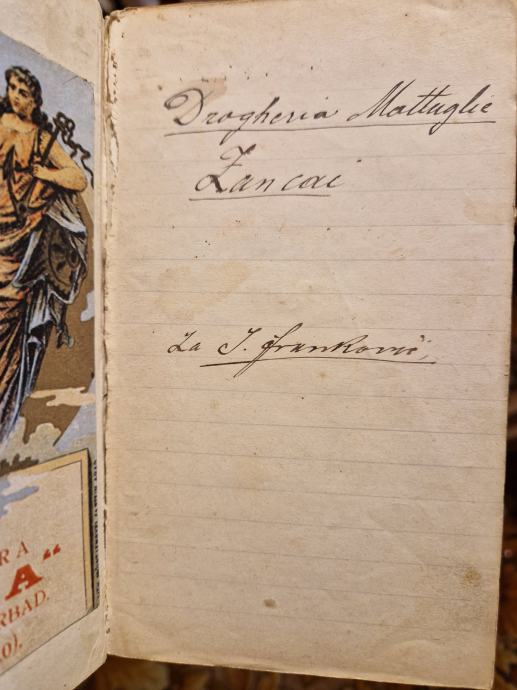 Drogheria Mattuglie
Zancai
za J. Franković,
RA
A“
RBAD.
0),